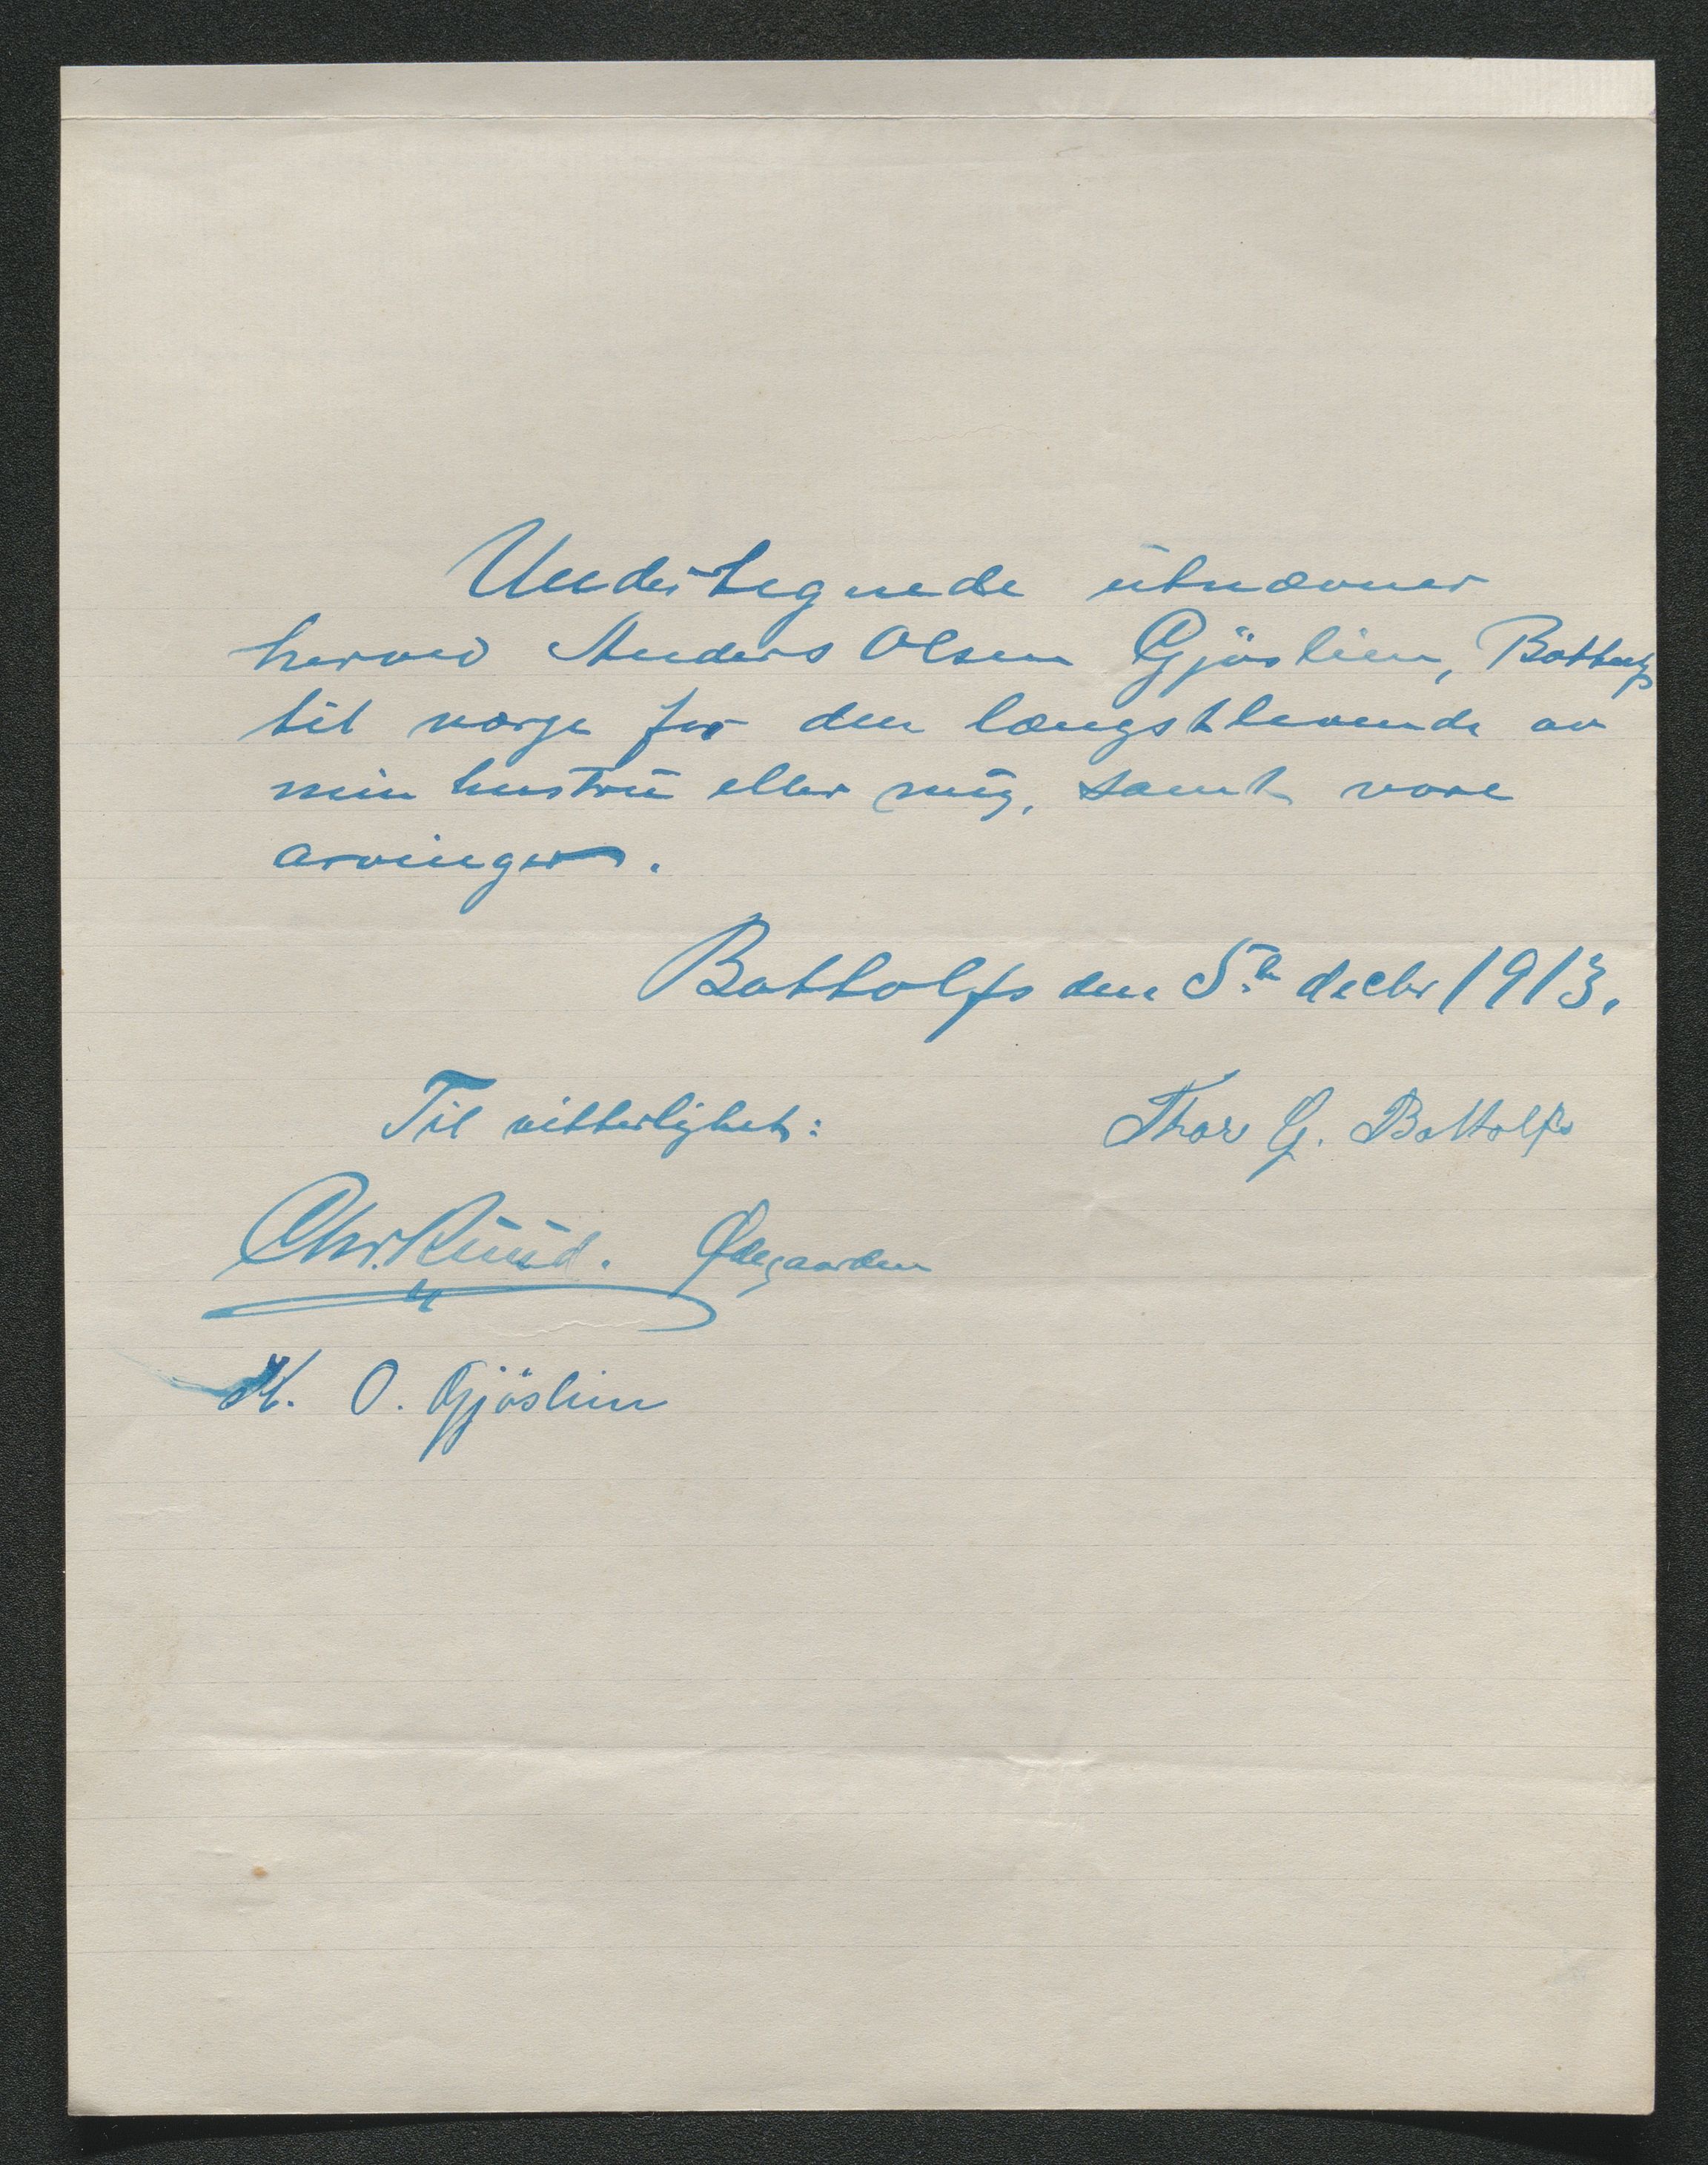 Undertegnede utnævner
herved Anders Olsen Gjöslien, Bottolfs
til værge for den længstlevende av
min hustru eller mig, samt vore
arvinger.
Bottolfs den 5te decbr 1913.
Til vitterlighet: Thor G. Bottolfs
Chr. Ruud. Ødegaarden
O. Gjöslien